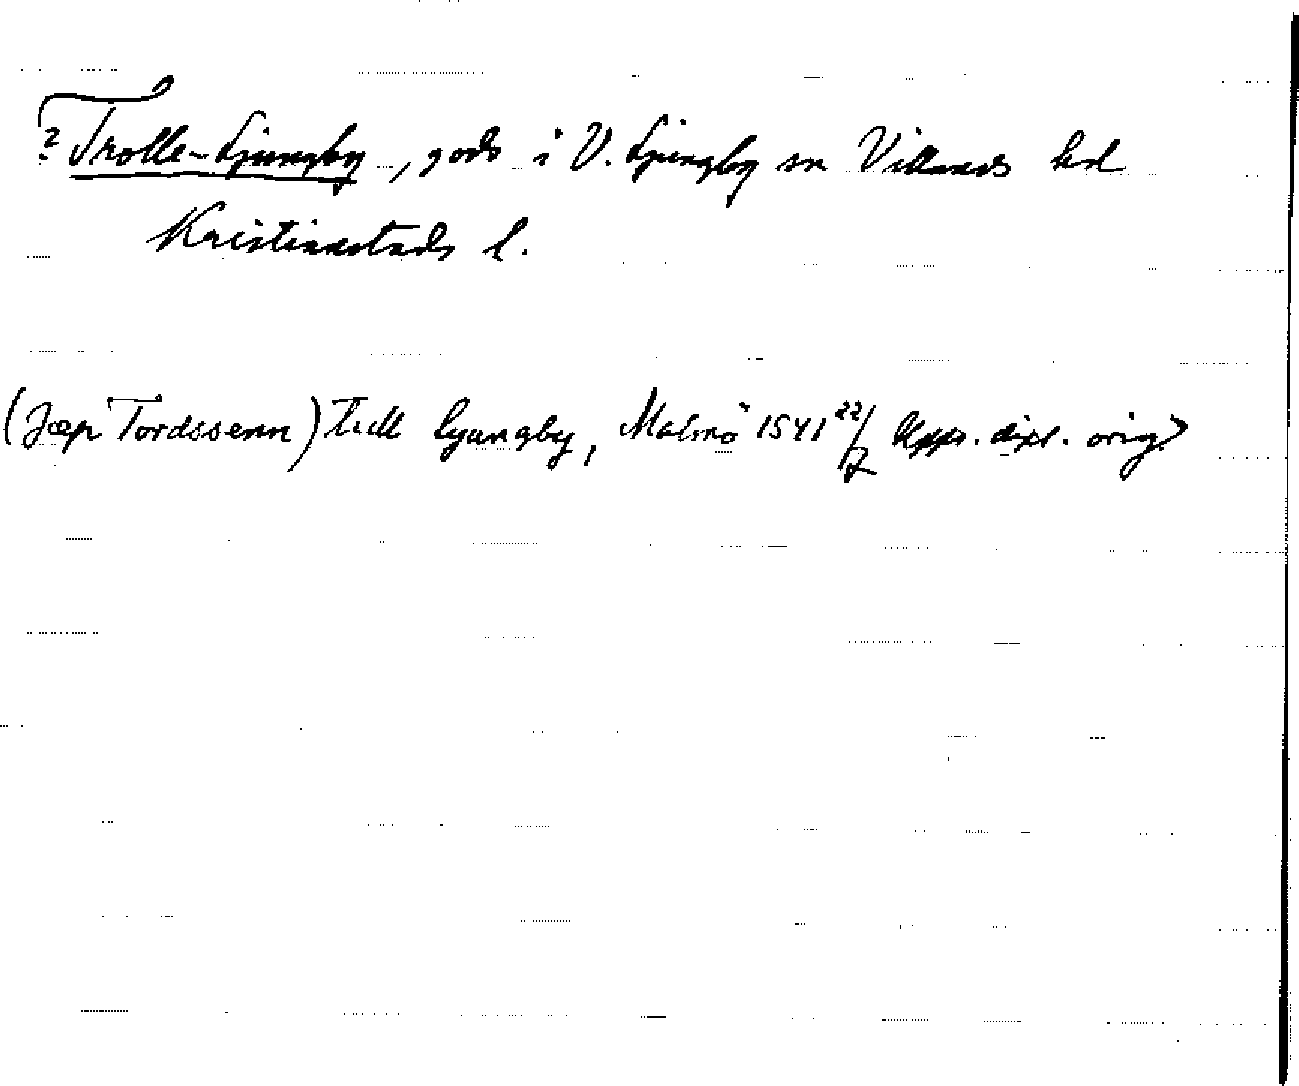 ? Trolle-Ljungby, gods i V. Ljungby sn Villands hd
Kristianstads l.
(Jæp Tordssenn) till lyungby, Malmö 1541 22/7 Upps. dipl. orig>